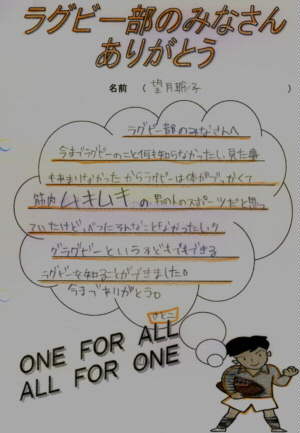 ラグビー部のみなさん
ありがとう
名前 ( 望月 子 )
ラグビー部のみなさんへ
今までラグビーのこと何も知らなかったし、見た事
もあまりなかったからラグビーは体がでっかくて
筋肉ムキムキの男の人のスポーツだと思っ
ていたけど、べつにそんなことなかったし、
タグラグビーという子どもでもできる
ラグビーを知ることができました。
今までありがとう。
さとこ
ONE FOR ALL
ALL FOR ONE